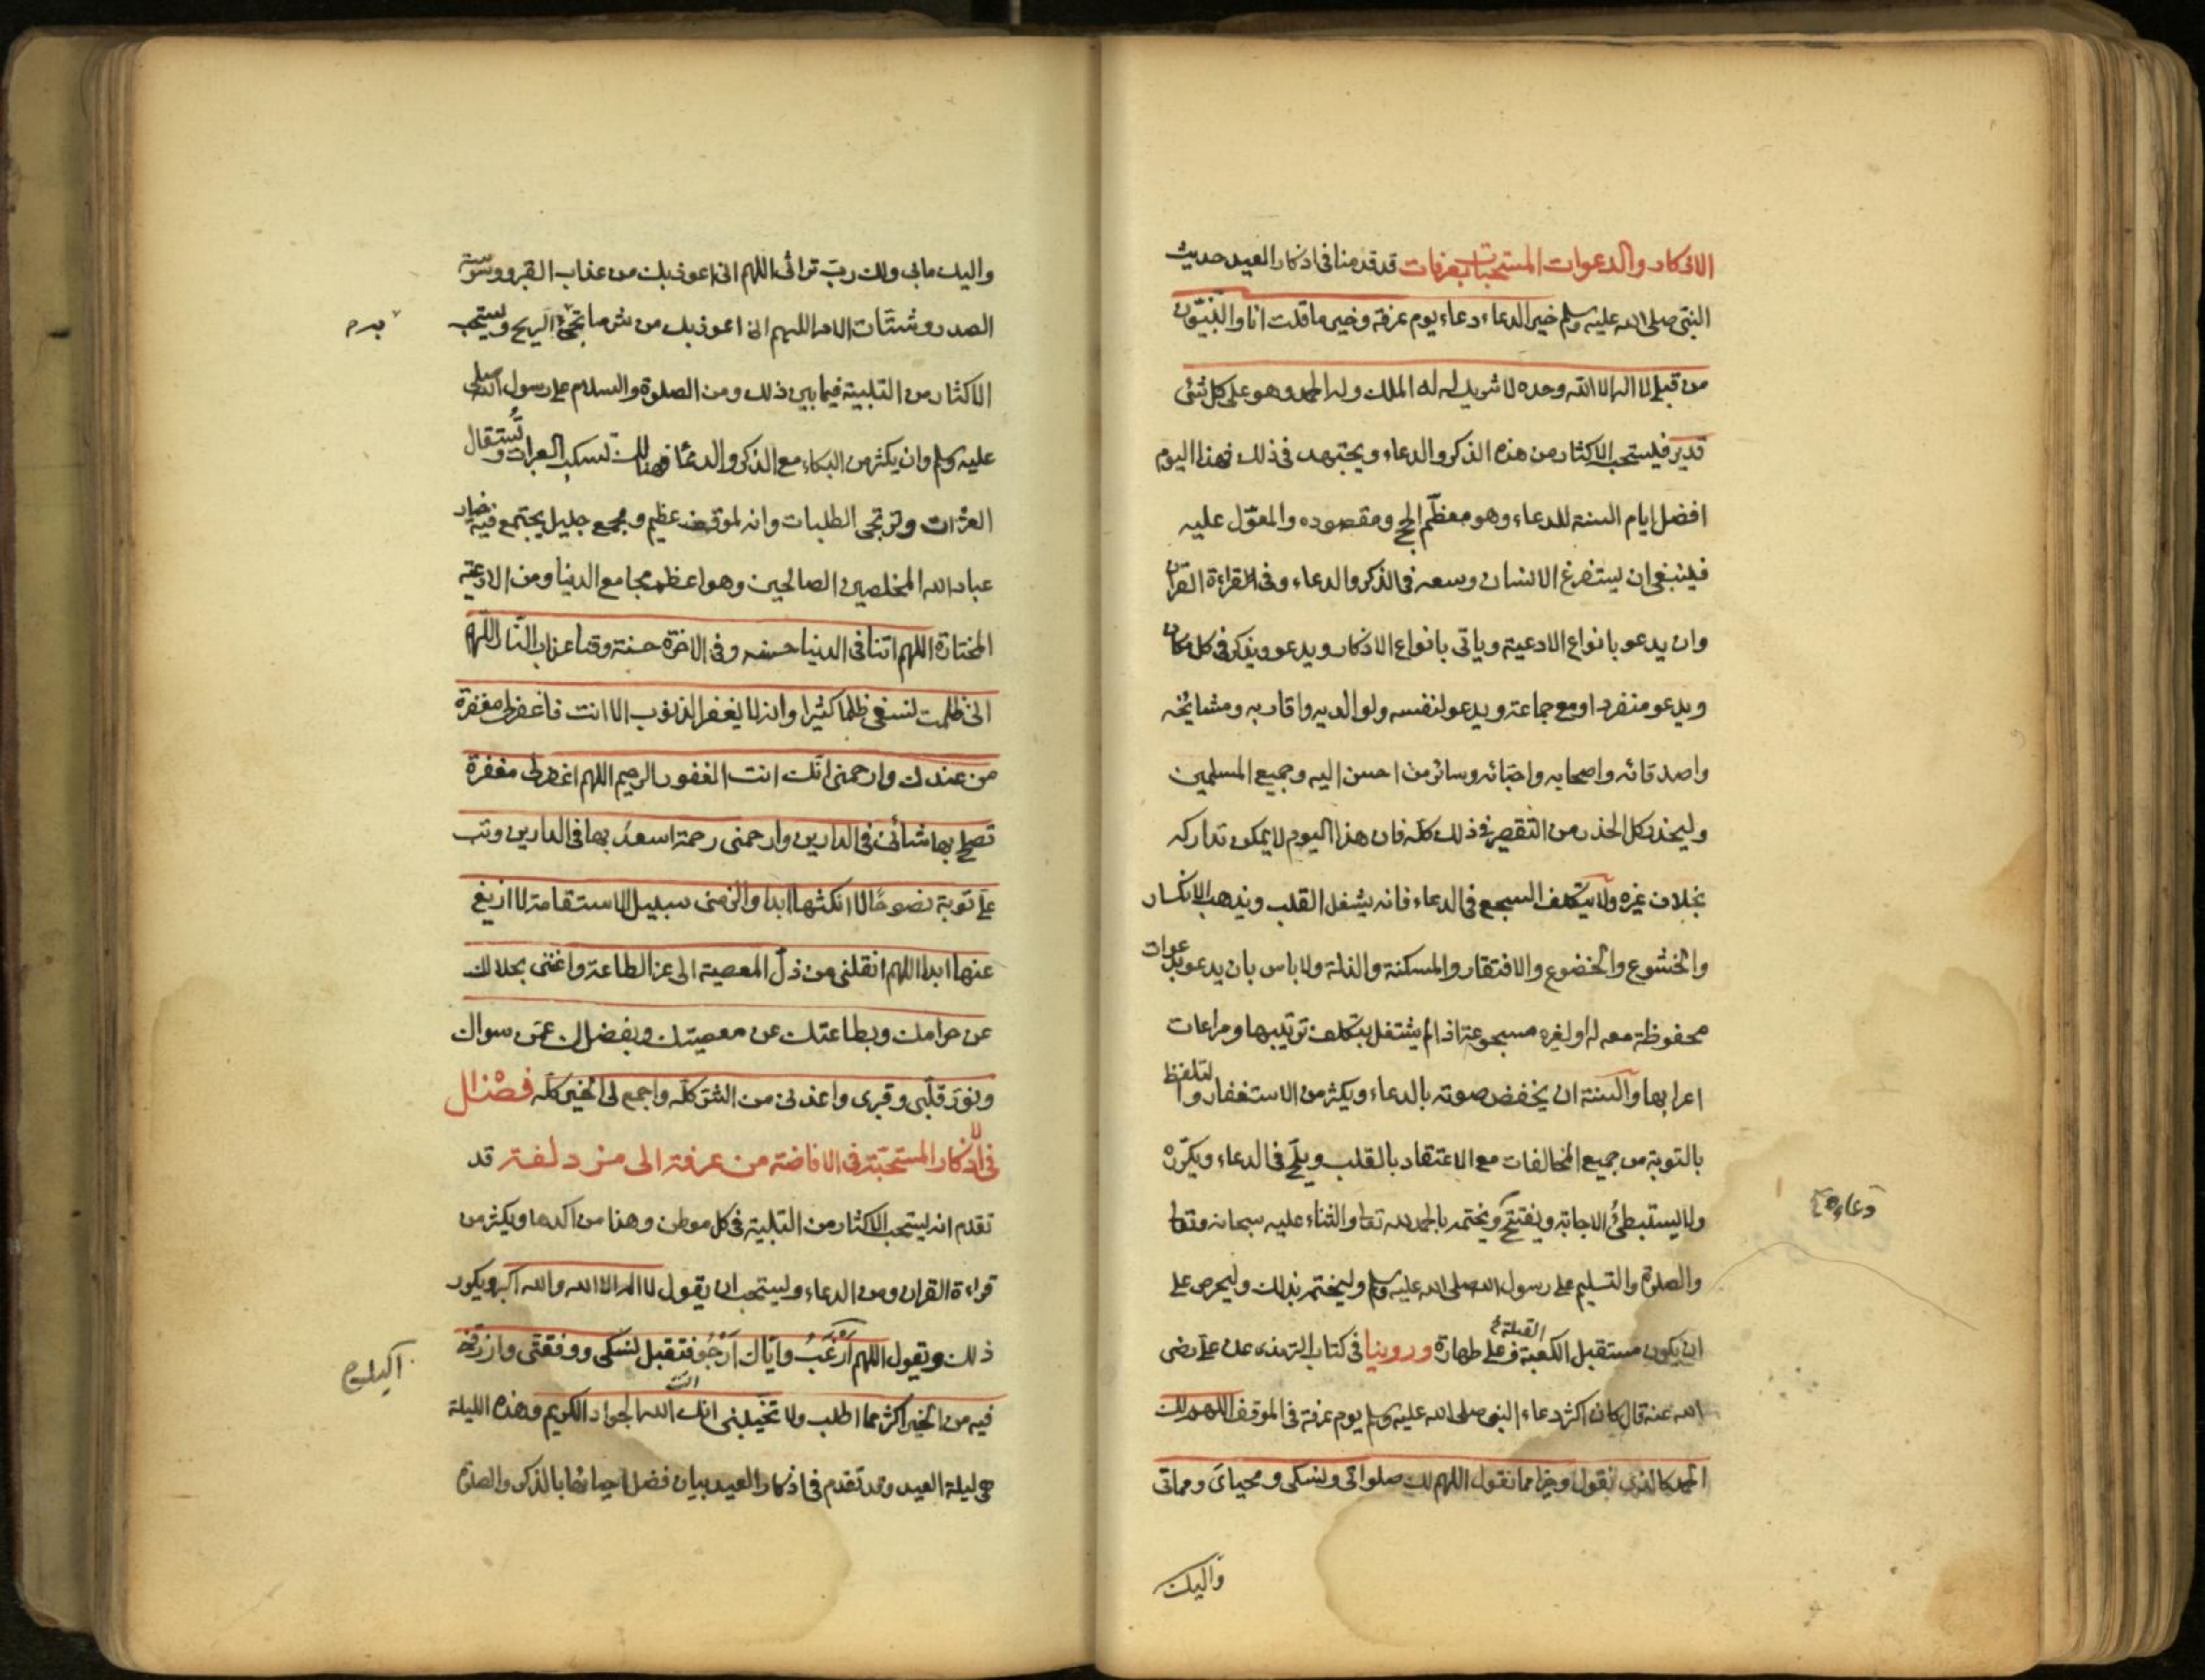 الاذكار والدعوات المستحبات بعرفات قد قدمنا فى اذكار العيد حديث
النبى صلى الله عليه وسلم خير الدعاء دعاء يوم عرفة وخير ما قلت انا والنبيّون
من قبلى لا اله الا الله وحده لا شريك له له الملك وله الحمد وهو على كل شئ
قدير فيستحب الاكثار من هذه الذكر والدعاء ويجتهد فى ذلك فهذا اليوم
افضل ايام السنة للدعاء وهو معظّم الحج ومقصوده والمعوّل عليه
فينبغى ان يستفرغ الانسان وسعه فى الذكر والدعاء وفى القراءة القرآن
وان يدعو بانواع الادعية وياتى بانواع الاذكار ويدعو ويذكر فى كل مكان
ويدعو منفردا ومع جماعة ويدعو لنفسه ولوالديه واقاربه ومشائخه
واصدقائه واصحابه واحبّائه وسائر من احسن اليه وجميع المسلمين
وليحذر كل الحذر من التقصير فى ذلك كله فان هذا اليوم لا يمكن تداركه
بخلاف غيره ولا يتكلف السجع فى الدعاء فانه يشغل القلب ويذهب الانكسار
والخشوع والخضوع والافتقار والمسكنة والذلة ولا باس بان يدعو بدعوات
محفوظة معه له او لغيره مسجوعة اذا لم يشتغل بتكلف ترتيبها ومراعات
اعرابها والسنة ان يخفض صوته بالدعاء ويكثر من الاستغفار والتلفظ
بالتوبة من جميع المخالفات مع الاعتقاد بالقلب ويلحّ فى الدعاء ويكرّره
ولا يستبطئ الاجابة ويفتتح ويختم بالحمد لله تعا والثناء عليه سبحانه وتعا
دعاءه
والصلوة والتسليم على رسول الله صلى الله عليه وسلم وليختم بذلك وليحرص على
ان يكون مستقبل الكعبة وعلى طهارة وروينا فى كتاب الترمذى عن على رضى
القبلة
الله عنه قال كان اكثر دعاء النبى صلى الله عليه وسلم يوم عرفة فى الموقف اللهم لك
الحمد كالذى نقول وخيرا مما نقول اللهم لك صلواتى ونسكى ومحياى ومماتى
واليك
واليك مابى ولك ربّ تراثى اللهم انى اعوذ بك من عذاب القبر ووسوسة
الصدر وشتات الامر اللهم انى اعوذ بك من شر ما تجئ الريح ويستحب
به م
الاكثار من التلبية فيما بين ذلك ومن الصلوة والسلام على رسول الله صلى
عليه وسلم وان يكثر من البكاء مع الذكر والدعاء فهنالك تسكب العبرات وتستقال
العثرات وترتجى الطلبات وانه لموقف عظيم ومجمع جليل يجتمع فيه خيار
عباد الله المخلصين الصالحين وهو اعظم مجامع الدنيا ومن الادعية
المختارة اللهم اتنا فى الدنيا حسنه وفى الاخرة حسنة وقنا عذاب النار اللهم
انى ظلمت نفسى ظلما كثيرا وانه لا يغفر الذنوب الا انت فاغفر لى مغفرة
من عندك وارحمنى انك انت الغفور الرحيم اللهم اغفر لى مغفرة
تصلح بها شأنى فى الدارين وارحمنى رحمة اسعد بها فى الدارين وتب
على توبة نصوحًا لا انكثها ابدا والزمنى سبيل الاستقامة لا ازيغ
عنها ابدا اللهم انقلنى من ذلّ المعصية الى عز الطاعة واغننى بحلالك
عن حرامك وبطاعتك عن معصيتك وبفضلك عمّن سواك
ونوّر قلبى وقبرى واعذنى من الشرّ كلّه واجمع لى الخير كلّه فصل
فى الاذكار المستحبّة فى الافاضة من عرفة الى مزدلفة قد
تقدم انه يستحب الاكثار من التلبية فى كل موطن وهذا من اكدها ويكثر من
قراءة القران ومن الدعاء ويستحب ان يقول لا اله الا الله والله اكبر ويكرر
ذلك ويقول اللهم ارْغَبُ وايّاك اَرْجُو فتقبل نسكى ووفقنى وارزقنى
اليك
فيه من الخير اكثر مما اطلب ولا تخيّبنى انك الله الجواد الكريم وهذه الليلة
انت
هى ليلة العيد وقد تقدم فى اذكار العيد بيان فضل احيائها بالذكر والصلوة